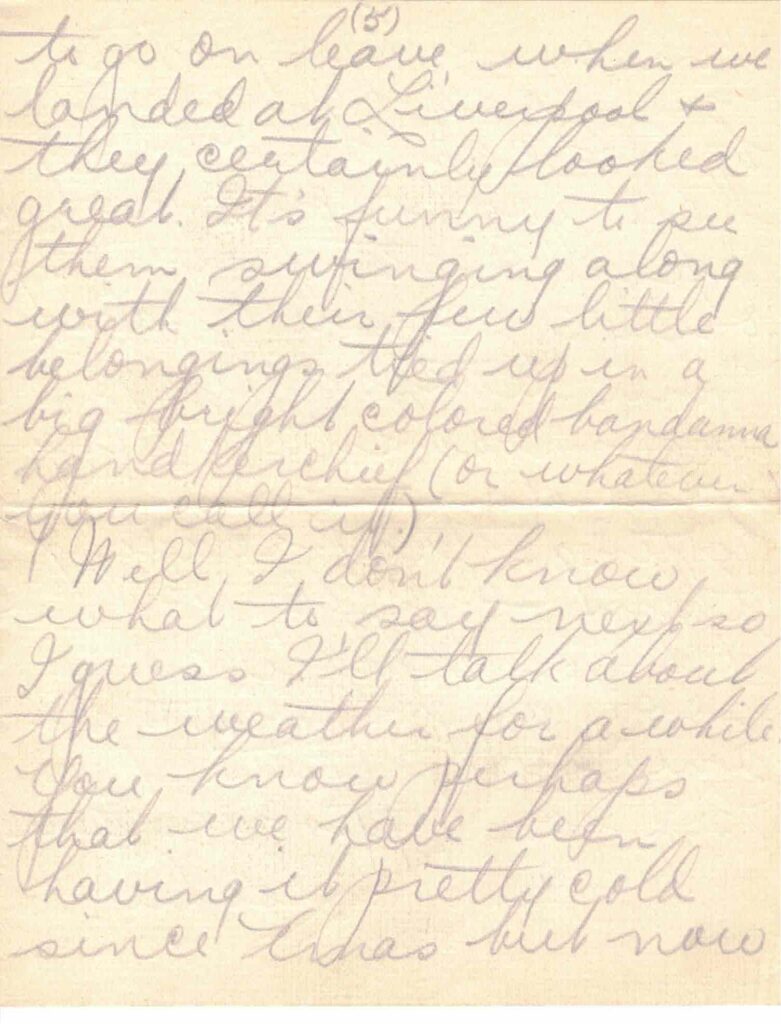 (5)
to go on leave when we
landed at Liverpool +
they certainly looked
great. It's funny to see
them swinging along
with their few little
belongings tied up in a
big bright colored bandanna
handkerchief (or whatever
you call it.)
Well, I don't know
what to say next so
I guess I'll talk about
the weather for a while.
You know perhaps
that we have been
having it pretty cold
since Xmas but now